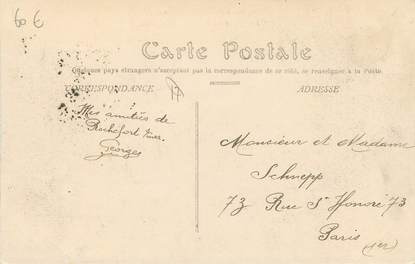 60 €
Carte Postale
Quelques pays étrangers n'acceptant pas la correspondance de ce côté, se renseigner à la Poste
CORRESPONDANCE
ADRESSE
Mes amitiés de
Rochefort s/mer.
Georges
Monsieur et Madame
Schnepp
73 Rue St Honoré 73
Paris (1er)